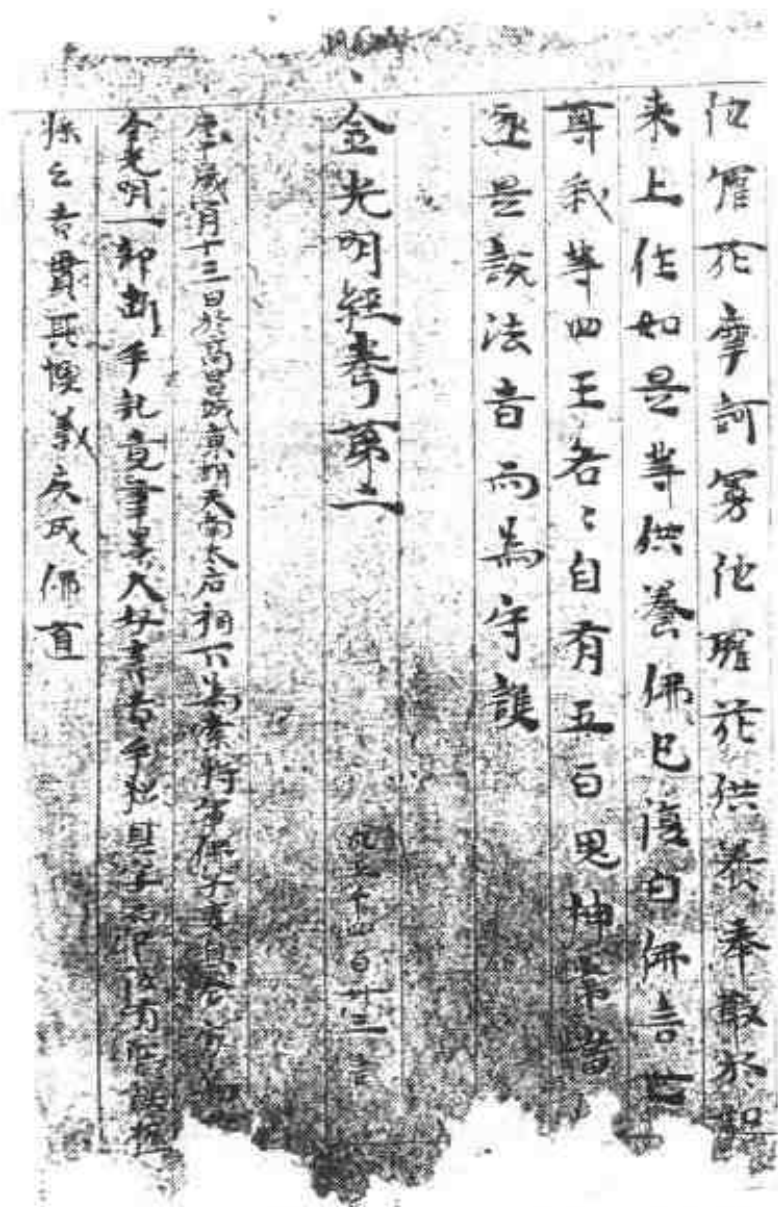 他羅花摩訶曼他羅花供養奉散於如
来上作如是等供養佛已復白佛言世
尊我等四王各〻自有五百鬼神常當
逐是說法者而為守護
金光明經卷第二 凡五千四百卅三言
庚午歲八月十三日於高昌城東胡天南太后祠下為索將軍佛子
金光明一部斷手訖竟筆墨大好書者手拙具字
疾之吉貫耳悞義疾成佛道